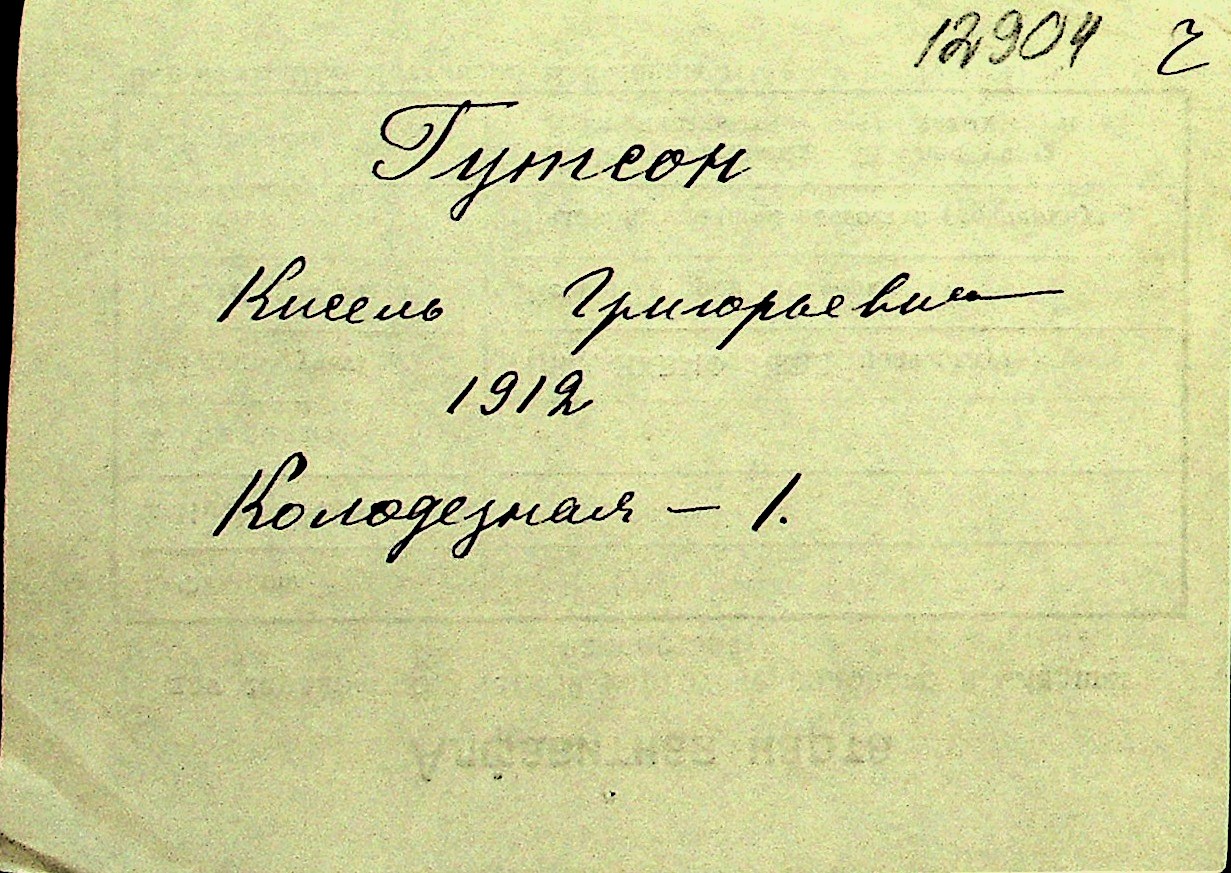 12904 г
Гутсон
Кисель Григорьевич
1912
Колодезная – 1.